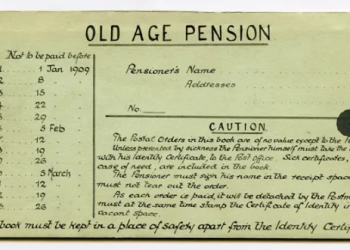 OLD AGE PENSION
Not to be paid before
1 Jan 1909
8 "
15
22
29
5 Feb
12
19
26
5 March
12
19
26
Pensioner's Name
Addresses
No.
CAUTION.
The Postal Orders in this book are of no value except to the
Unless prevented by sickness the Pensioner himself must take the
with his Identity Certificate, to the Post Office Sick certificates,
case of need, are included in the book.
The Pensioner must sign his name in the receipt space
must not tear out the order.
As each order is paid, it will be detached by the Postm
must at the same time stamp the Certificate of Identity in
vacant space.
book must be kept in a place of safety apart from the Identity Certif